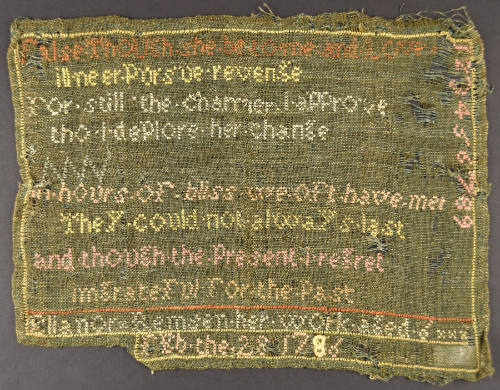 False Though she be to me and Love
ill neer Pursue revenge
For still the charmer I approve
tho I deplore her change
in hours of bliss we oft have met
They could not always last
and though the Present I regret
im grateful for the Past
work aged
Feb the 28 1786